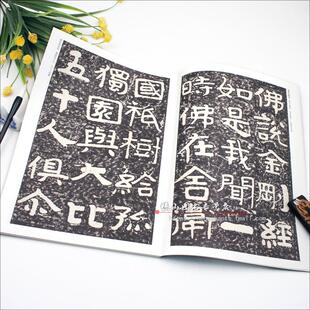 佛說金剛經
如是我聞一
時佛在舍衛
國祇樹給孤
獨園與大比
五十人俱尒